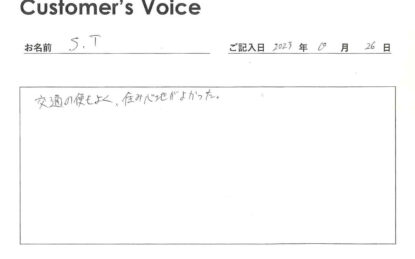 Customer's Voice
お名前 S.T ご記入日 年 月 26 日
交通の便もよく、住み心地がよかった。